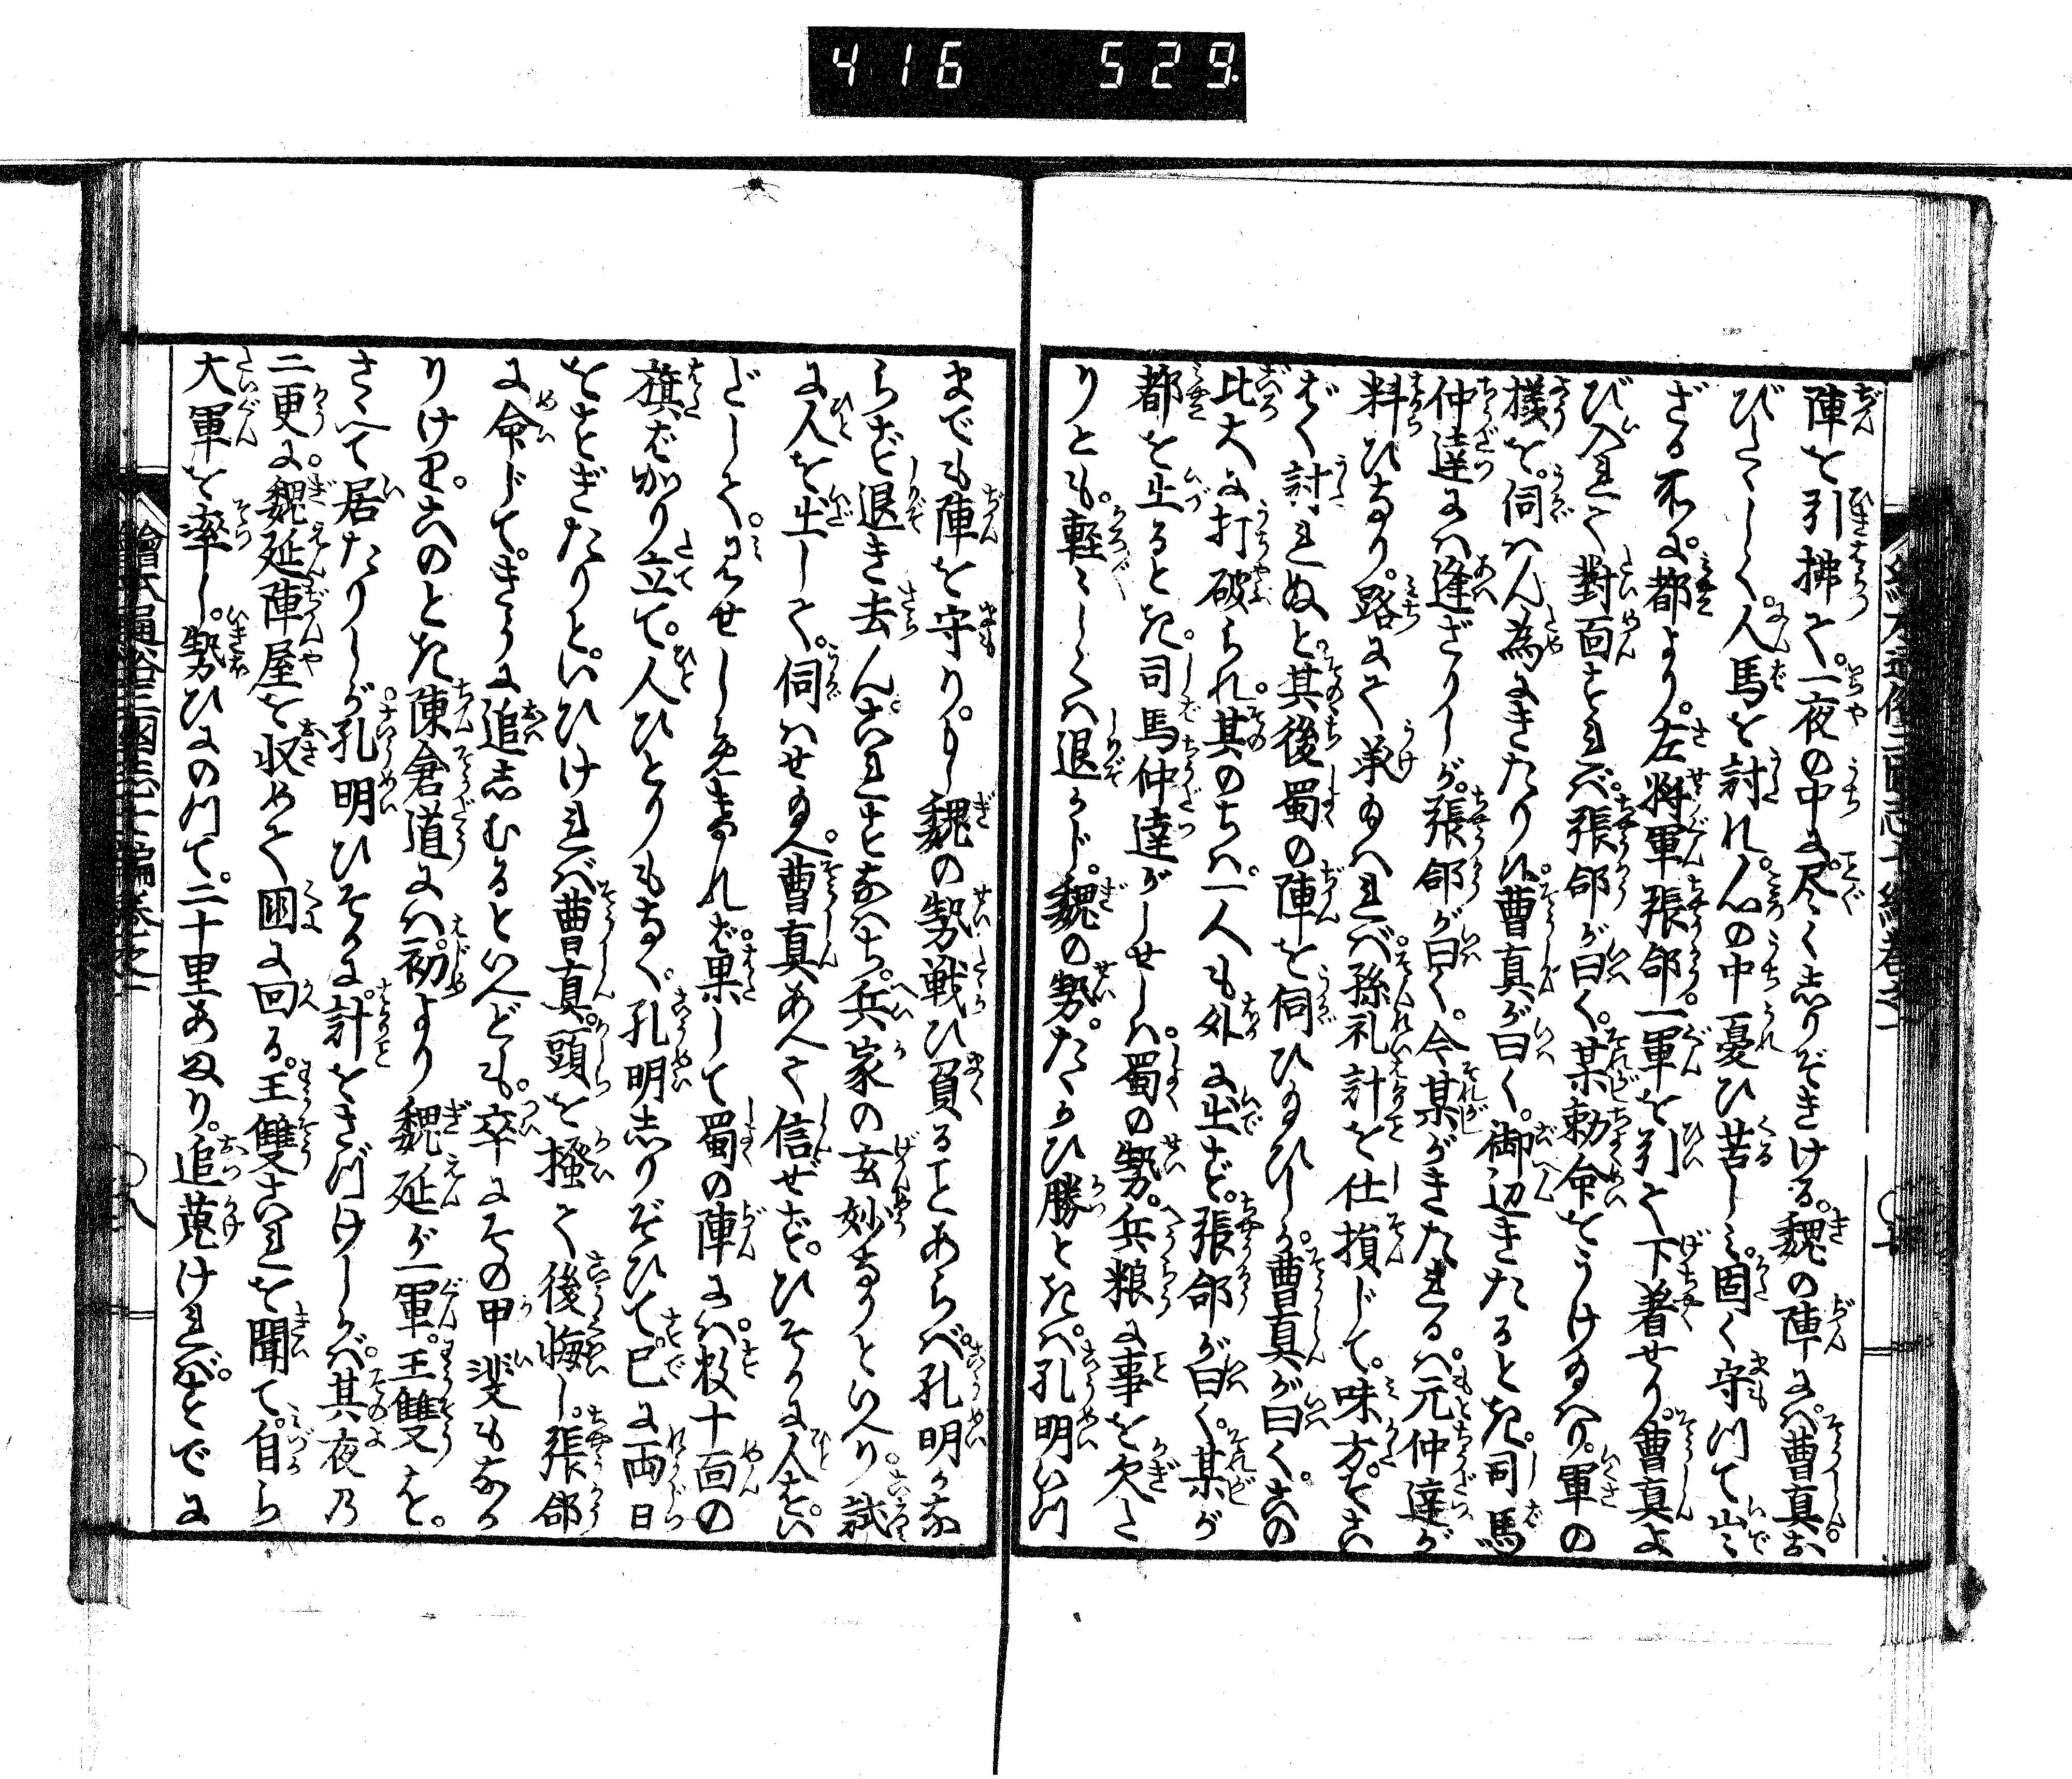 416 529
陣を引拂て。一夜の中に尽くしりぞきける。魏の陣には曹真。お
びたゞしく人馬を討れ。心の中憂ひ苦しみ。固く守つて出
ざる所に。都より。左将軍張郃。一軍を引て下着せり。曹真よ
び入れて對面すれば。張郃が曰く。某勅命をうけ給はり。軍の
様を。伺はん為にきたりぬ。曹真が曰く。御辺きたるとき。司馬
仲達には逢ざりしが。張郃が曰く。今某がきたれるは。元仲達が
料ひなり。路にて承給はれば。孫礼計を仕損じて。味方こと〴〵
ばく討れぬと。其後蜀の陣を伺ひ給ひしか。曹真が曰く。この
比大に打破られ。其のちは一人も外に出ず。張郃が曰く。某が
都を出るとき。司馬仲達が申せしは。蜀の勢。兵粮に事を欠た
りとも。軽々しくは退かじ。魏の勢。たゝかひ勝ときは。孔明いつ
までも陣を守り。もし魏の勢戦ひ負ることあらば。孔明かな
らず退き去ん。これすなはち。兵家の玄妙なりといへり。試
に人を出して。伺はせ給へ。曹真あへて信ぜず。ひそかに人をい
だして。見せしめければ。果して蜀の陣には。数十面の
旗ばかり立て。人ひとりもなく。孔明しりぞひて。已に両日
をすぎたりと。いひければ。曹真。頭を掻て後悔し。張郃
に命じて。きうに追しむるといへども。卒にその甲斐もなか
りけり。このとき陳倉道には。初より魏延が一軍。王雙を。
さゝへて居たりしが。孔明ひそかに。計をさづけしかば。其夜乃
二更に。魏延陣屋を収めて国に回る。王雙これを聞て。自ら
大軍を率し。勢ひにのつて。二十里あまり。追蒐ければ。すでに
繪本通俗三國志七編巻之一